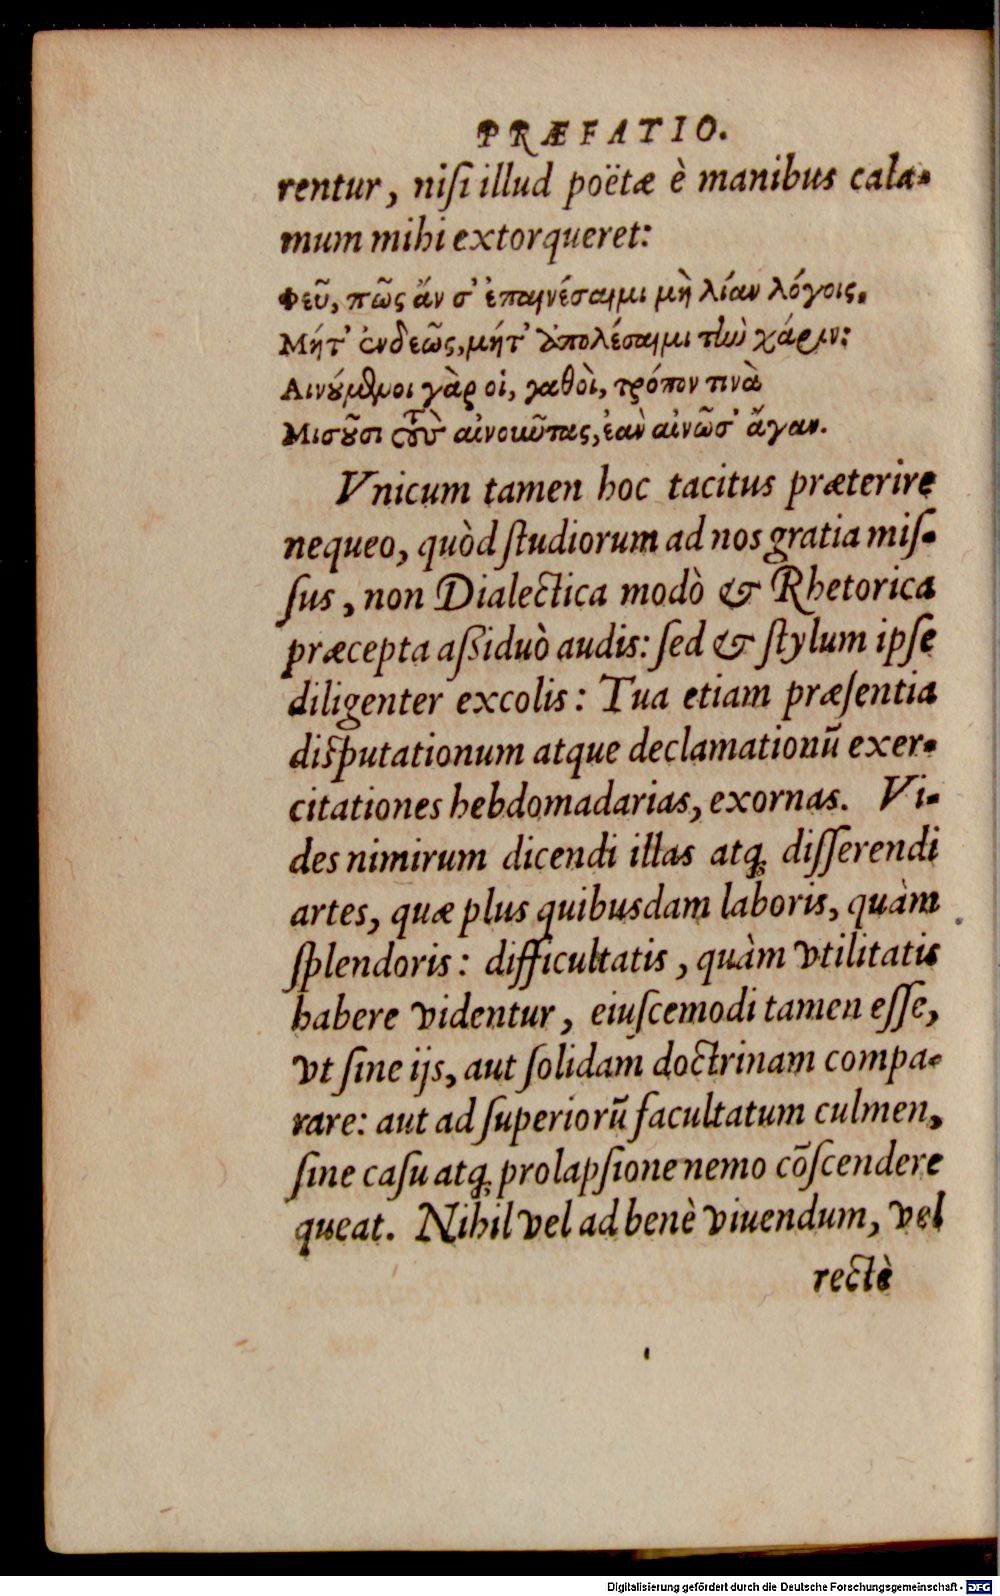 PRÆFATIO.
rentur, niſi illud poëtæ è manibus cala-
mum mihi extorqueret:
Φεῦ, πῶς ἄν σ' ἐπαινέσαιμι μὴ λίαν λόγοις,
Μήτ' ἐνδεῶς, μήτ' ἀπολέσαιμι τὴν χάριν:
Αἰνούμενοι γὰρ οἱ, γαθοὶ, τρόπον τινὰ
Μισοῦσι τοὺς αἰνοιῶτας, ἐὰν αἰνῶσ' ἄγαν.
Vnicum tamen hoc tacitus præterire
nequeo, quòd ſtudiorum ad nos gratia miſ-
ſus, non Dialectica modò & Rhetorica
præcepta aſsiduò audis: ſed & ſtylum ipſe
diligenter excolis: Tua etiam præſentia
diſputationum atque declamationũ exer-
citationes hebdomadarias, exornas. Vi-
des nimirum dicendi illas atq; diſſerendi
artes, quæ plus quibusdam laboris, quàm
ſplendoris: difficultatis, quàm vtilitatis
habere videntur, eiuſcemodi tamen eſſe,
vt ſine ijs, aut ſolidam doctrinam compa-
rare: aut ad ſuperiorũ facultatum culmen,
ſine caſu atq; prolapſione nemo cõſcendere
queat. Nihil vel ad benè viuendum, vel
rectè
Digitalisierung gefördert durch die Deutsche Forschungsgemeinschaft - DFG